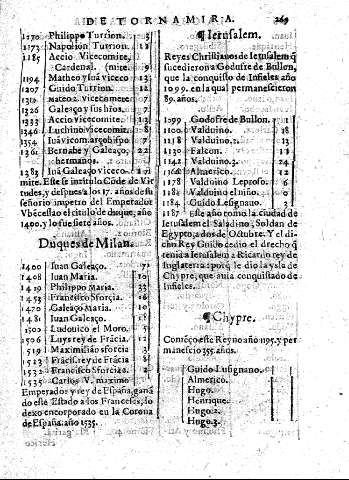 DE TORNAMIRA. 269
1170 Philippo Turrion. 3
1173 Napolion Turrion. 12
1185 Accio Vicecomite,
Cardenal. (mite. 9
1194 Matheo y su vicco 13
1207 Guido Turrion. 12
1319 Mateo 2. vicecomite 7
1326 Galeaço y sus hios. 7
1333 Accio vicecomite. 13
1346 Luchino vicecomite. 8
1354 Iuã vicom. arçobispo 7
1361 Bernabe y Galeaço, 22
hermanos.
1383 Iuã Galeaço viceco
mite. Este se intitulo Cõde de Vir
tudes, y despues a los 17. años de su
señorio impetro del Emperador
Vbécestao el titulo de duque, año
1400. y lo fue siete años.
Duques de Milan.
1400 Iuan Galeaço. 7
1408 Iuan Maria. 10
1419 Philippo Maria. 33
1453 Francisco Sforcia. 16
1470 Galeaço Maria. 10
1481 Iuan Galeaço. 18
1500 Ludouico el Moro. 5
1506 Luys rey de Frãcia. 8
1519 Maximilião sforcia 3
1523 Frãcis. rey de Frãcia 8
1532 Francisco Sforcia. 2
1535 Carlos V. maximo
Emperador y rey de España, ganã
do este Estado a los Franceses, lo
dexo encorporado en la Corona
de España. año 1535.
¶Ierusalem.
Reyes Christianos de Ierusalem q̃
sucedieron a Godufre de Bullon,
que la conquisto de Infieles año
1099. en la qual permanescieron
89. años.
1099 Godofre de Bullon. 1
1100 Valduino. 18
1118 Valduino. 2. 13
1130 Falcon. 11
1142 Valduino 3. 24
1166 Almerico. 12
1178 Valduino Leproso. 6
1184 Valduino el niño. 0
1184 Guido Lusignano. 3
1187 Este año tomo la ciudad de
Ierusalem el Saladino, Soldan de
Egypto, a dos de Octubre. Y el di
cho Rey Guido cedio el drecho q̃
tenia a Ierusalem a Ricardo rey de
Inglaterra: porq̃ le dio la ysla de
Chypre, que auia conquistado de
Infieles.
¶Chypre.
Comẽço este Reyno año 1195. y per
manescio 355. años.
Guido Lusignano.
Almerico.
Hugo.
Henrique.
Hugo. 2.
Hugo. 3.